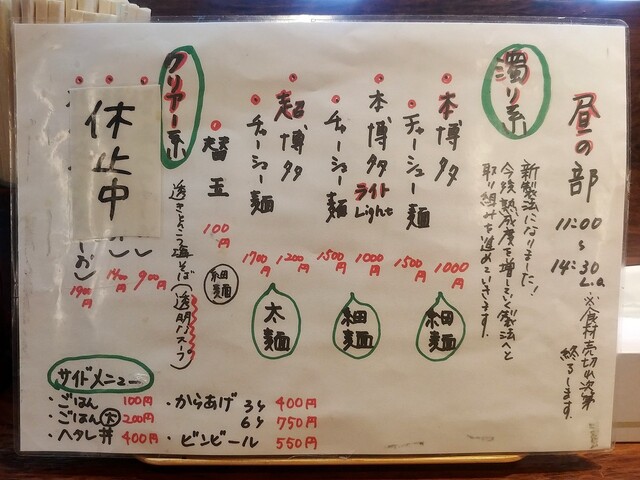 昼の部
11:00
〜
14:30
L.o.
※食材売切れ次第
終了します。
濁り系
新製法になりました！
今後熟成度を増していく製法へと
取り組みを進めていきます。
本博多
1000円
チャーシュー麺
1500円
細麺
本博多
ライト
Light
1000円
チャーシュー麺
1500円
細麺
超博多
1200円
チャーシュー麺
1700円
太麺
替玉
100円
細麺
クリアー系
透きとおる塩そば(透明スープ)
休止中
900円
1400円
1900円
サイドメニュー
・ごはん 100円
・ごはん大 200円
・ヘタレ丼 400円
・からあげ 3ケ 400円
6ケ 750円
・ビンビール 550円